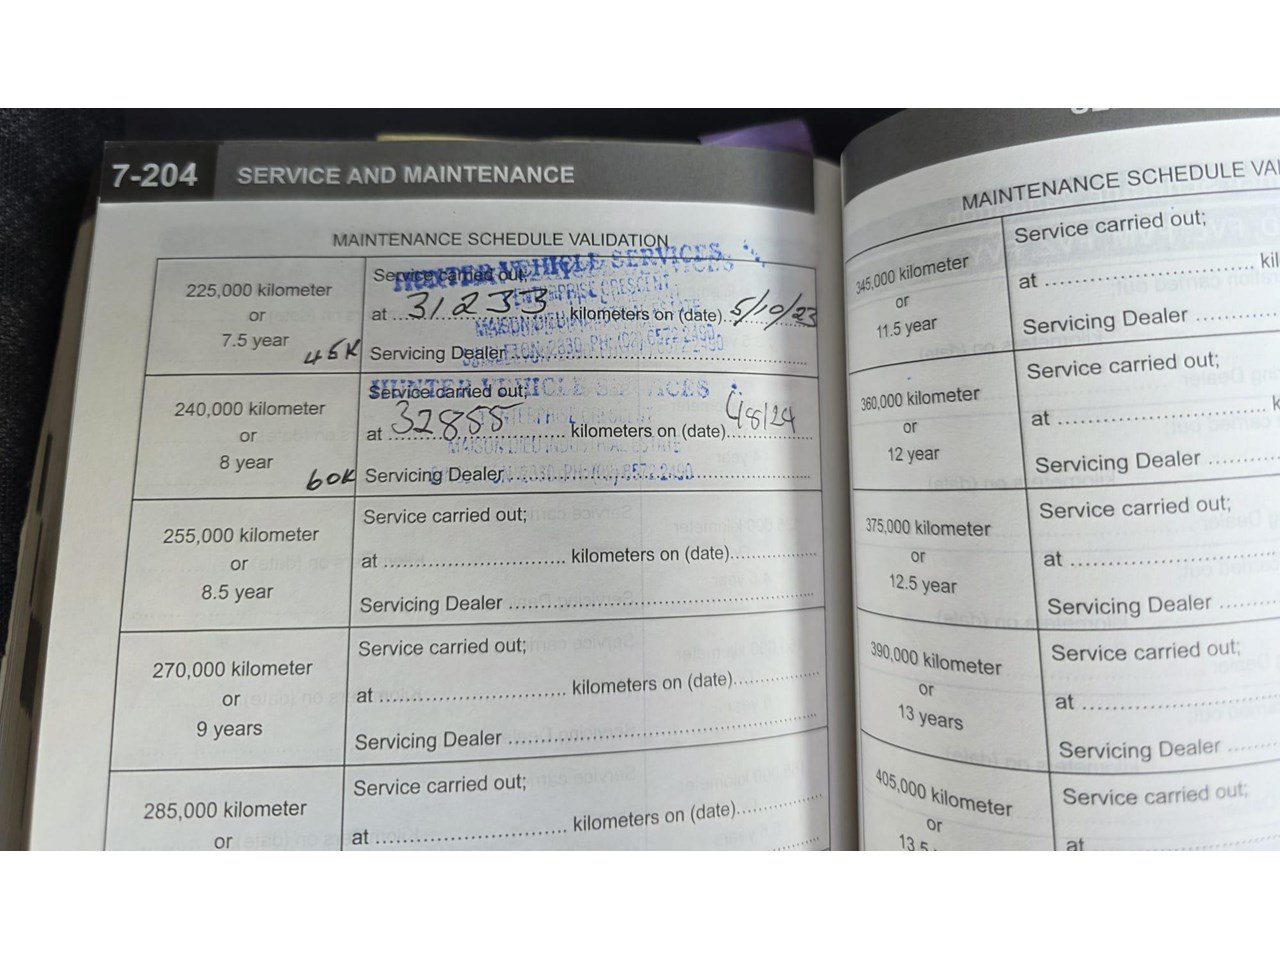 7-204 SERVICE AND MAINTENANCE
MAINTENANCE SCHEDULE VALIDATION
225,000 kilometer
or
7.5 year
45K
Service carried out;
HUNTER VEHICLE SERVICES
ENTERPRISE CRESCENT
at 31233 kilometers on (date). 5/10/23
MAISON DIEU INDUSTRIAL ESTATE
2330 PH: (02) 6572 2490
Servicing Dealer
240,000 kilometer
or
8 year
60K
Service carried out;
HUNTER VEHICLE SERVICES
ENTERPRISE CRESCENT
at 32855 kilometers on (date). 4/8/24
MAISON DIEU INDUSTRIAL ESTATE
2330 PH: (02) 6572 2490
Servicing Dealer
255,000 kilometer
or
8.5 year
Service carried out;
at kilometers on (date)
Servicing Dealer
270,000 kilometer
or
9 years
Service carried out;
at kilometers on (date)
Servicing Dealer
285,000 kilometer
or
Service carried out;
at kilometers on (date)
MAINTENANCE SCHEDULE VAL
345,000 kilometer
or
11.5 year
Service carried out;
at kil
Servicing Dealer
360,000 kilometer
or
12 year
Service carried out;
at k
Servicing Dealer
375,000 kilometer
or
12.5 year
Service carried out;
at
Servicing Dealer
390,000 kilometer
or
13 years
Service carried out;
at
Servicing Dealer
405,000 kilometer
or
13.5
Service carried out;
at